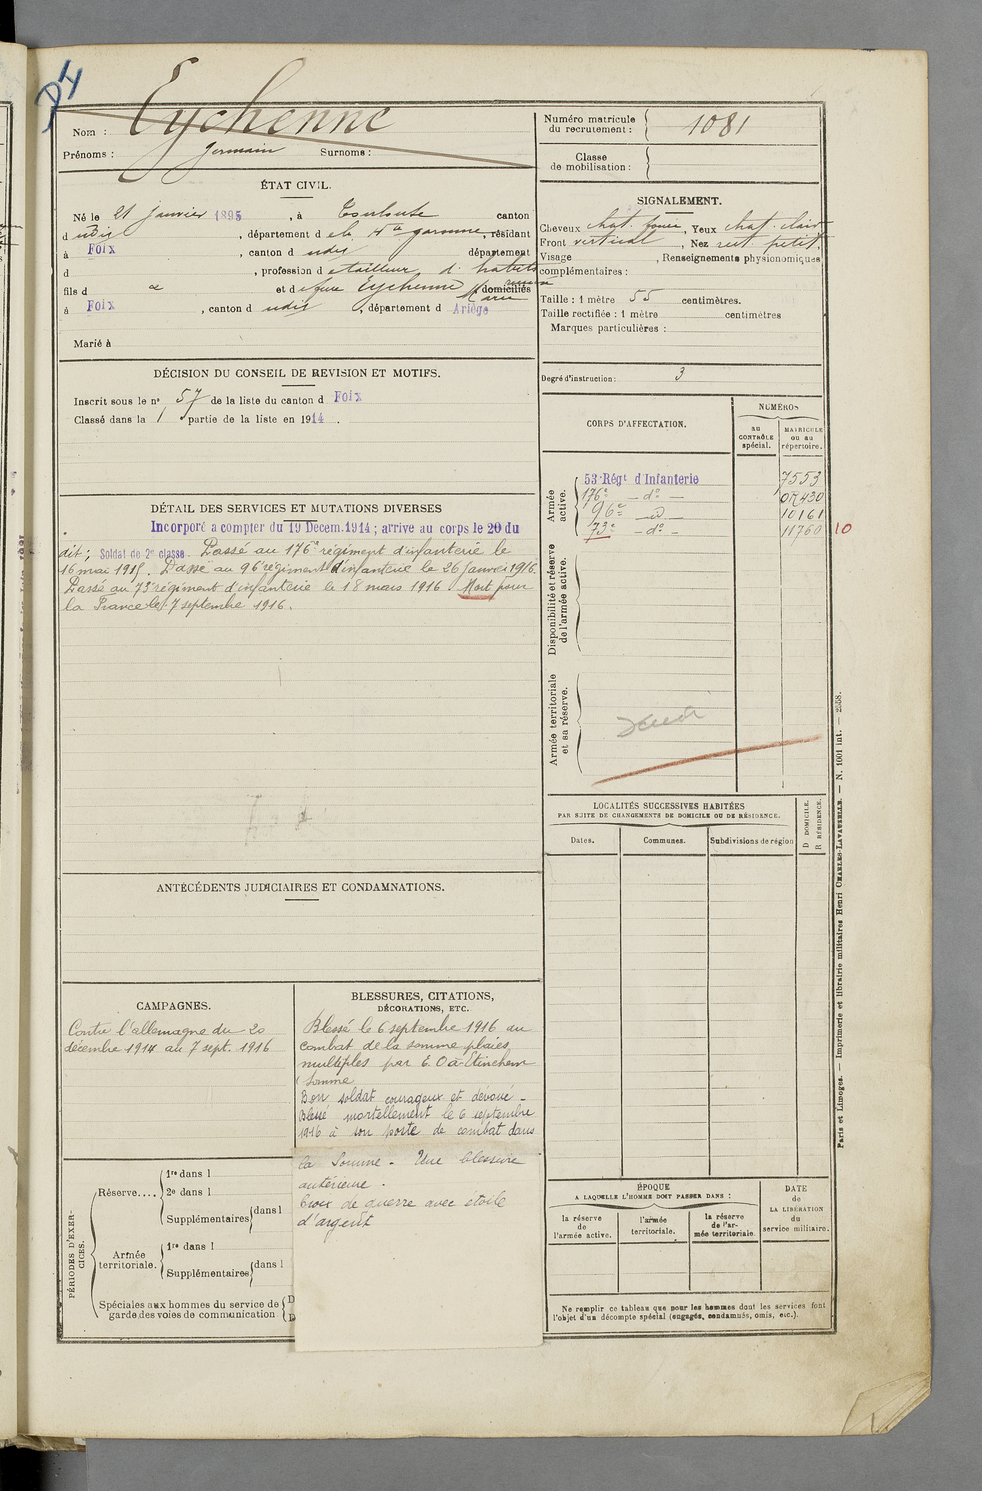 D4
Nom : Eychenne
Prénoms : Germain Surnoms :
Numéro matricule
du recrutement : 1081
Classe
de mobilisation :
ÉTAT CIVIL.
Né le 21 janvier 1895, à Toulouse canton
d udit, département d e la Hte garonne, résidant
à Foix, canton d udit département
d , profession d e tailleur d'habits
fils d et d Eychenne Marie domiciliés
à Foix, canton d udit, département d Ariège
Marié à
SIGNALEMENT.
Cheveux chat. foncé, Yeux chat. clair
Front vertical, Nez rect. petit,
Visage , Renseignements physionomiques
complémentaires :
Taille : 1 mètre 55 centimètres.
Taille rectifiée : 1 mètre centimètres
Marques particulières :
Degré d'instruction : 3
DÉCISION DU CONSEIL DE REVISION ET MOTIFS.
Inscrit sous le n° 57 de la liste du canton d Foix
Classé dans la 1e partie de la liste en 1914.
CORPS D'AFFECTATION.
NUMÉROS
au
CONTRÔLE
spécial.
MATRICULE
ou au
répertoire.
Armée
active.
53e Régt d'Infanterie 7553
176e — do — 07430
96e — d — 10161
73e — do — 11760 10
Disponibilité et réserve
de l'armée active.
Armée territoriale
et sa réserve.
DÉTAIL DES SERVICES ET MUTATIONS DIVERSES
Incorporé a compter du 19 Décem. 1914 ; arrive au corps le 20 du
dit ; Soldat de 2e classe. Passé au 176e régiment d'infanterie le
16 mai 1915. Passé au 96e régiment d'infanterie le 26 Janvier 1916.
Passé au 73e régiment d'infanterie le 18 mars 1916. Mort pour
la France le 7 septembre 1916.
LOCALITÉS SUCCESSIVES HABITÉES
PAR SUITE DE CHANGEMENTS DE DOMICILE OU DE RÉSIDENCE.
Dates.
Communes.
Subdivisions de région
D DOMICILE.
R RÉSIDENCE.
ANTÉCÉDENTS JUDICIAIRES ET CONDAMNATIONS.
CAMPAGNES.
Contre l'allemagne du 20
décembre 1914 au 7 sept. 1916
BLESSURES, CITATIONS,
DÉCORATIONS, ETC.
Blessé le 6 septembre 1916 au
combat de la somme plaies
multiples par E. O à Etinehem
Somme
Bon soldat courageux et dévoué -
Blessé mortellement le 6 septembre
1916 à son poste de combat dans
la Somme. Une blessure
antérieure.
Croix de guerre avec étoile
d'argent
PÉRIODES D'EXER-
CICES.
Réserve....
1re dans l
2e dans l
Supplémentaires dans l
Armée
territoriale.
1re dans l
Supplémentaires dans l
Spéciales aux hommes du service de
garde des voies de communication
ÉPOQUE
A LAQUELLE L'HOMME DOIT PASSER DANS :
la réserve
de
l'armée active.
l'armée
territoriale.
la réserve
de l'ar-
mée territoriale.
DATE
de
LA LIBÉRATION
du
service militaire.
Ne remplir ce tableau que pour les hommes dont les services font
l'objet d'un décompte spécial (engagés, condamnés, omis, etc.).
Paris et Limoges. — Imprimerie et librairie militaires Henri CHARLES-LAVAUZELLE. — N. 1001 int. — 2558.